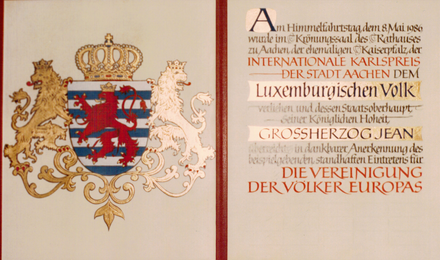 Am Himmelfahrtstag, dem 8. Mai 1986
wurde im Krönungssaal des Rathauses
zu Aachen, der ehemaligen Kaiserpfalz, der
INTERNATIONALE KARLSPREIS
DER STADT AACHEN DEM
Luxemburgischen Volk
verliehen und dessen Staatsoberhaupt
Seiner Königlichen Hoheit,
GROSSHERZOG JEAN
überreicht in dankbarer Anerkennung des
beispielgebenden, standhaften Eintretens für
DIE VEREINIGUNG
DER VÖLKER EUROPAS